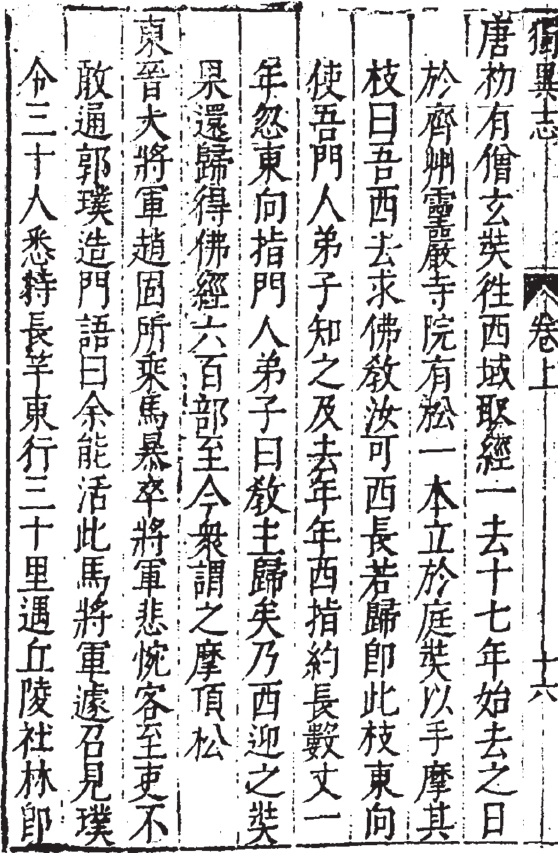 獨異志 卷上 十六
唐初有僧玄奘往西域取經一去十七年始去之日
於齊州靈巖寺院有松一本立於庭奘以手摩其
枝曰吾西去求佛教汝可西長若歸即此枝東向
使吾門人弟子知之及去年年西指約長數丈一
年忽東向指門人弟子曰教主歸矣乃西迎之奘
果還歸得佛經六百部至今衆謂之摩頂松
東晉大將軍趙固所乘馬暴卒將軍悲惋客至吏不
敢通郭璞造門語曰余能活此馬將軍遽召見璞
令三十人悉持長竿東行三十里遇丘陵社林即